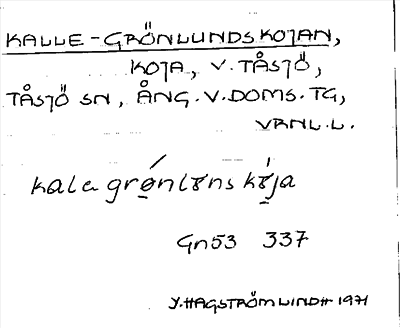 KALLE-GRÖNLUNDSKOJAN,
KOJA, V. TÅSJÖ,
TÅSJÖ SN, ÅNG. V. DOMS. TG,
VRNL.L.
kale grǿnlɤns kɤ́ja
Gn53 337
Y. HAGSTRÖM LINDH 1971